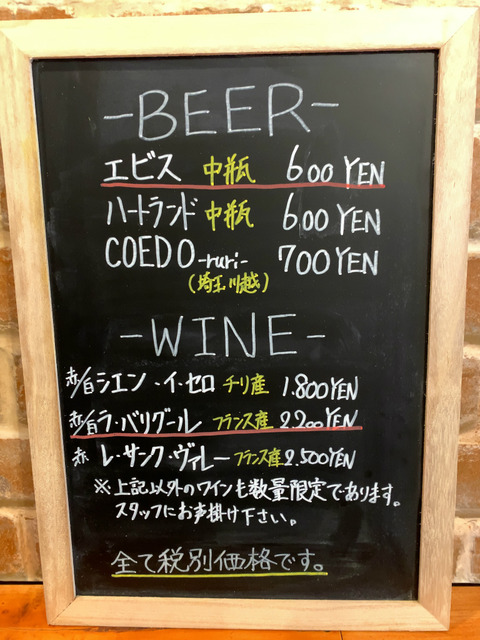 -BEER-
エビス 中瓶 600 YEN
ハートランド 中瓶 600 YEN
COEDO -ruri- 700 YEN
(埼玉川越)
-WINE-
赤/白 シエン・イ・セロ チリ産 1.800 YEN
赤/白 ラ・バリグール フランス産 2.200 YEN
赤 レ・サンク・ヴァレー フランス産 2.500 YEN
※上記以外のワインも数量限定であります。
スタッフにお声掛け下さい。
全て税別価格です。